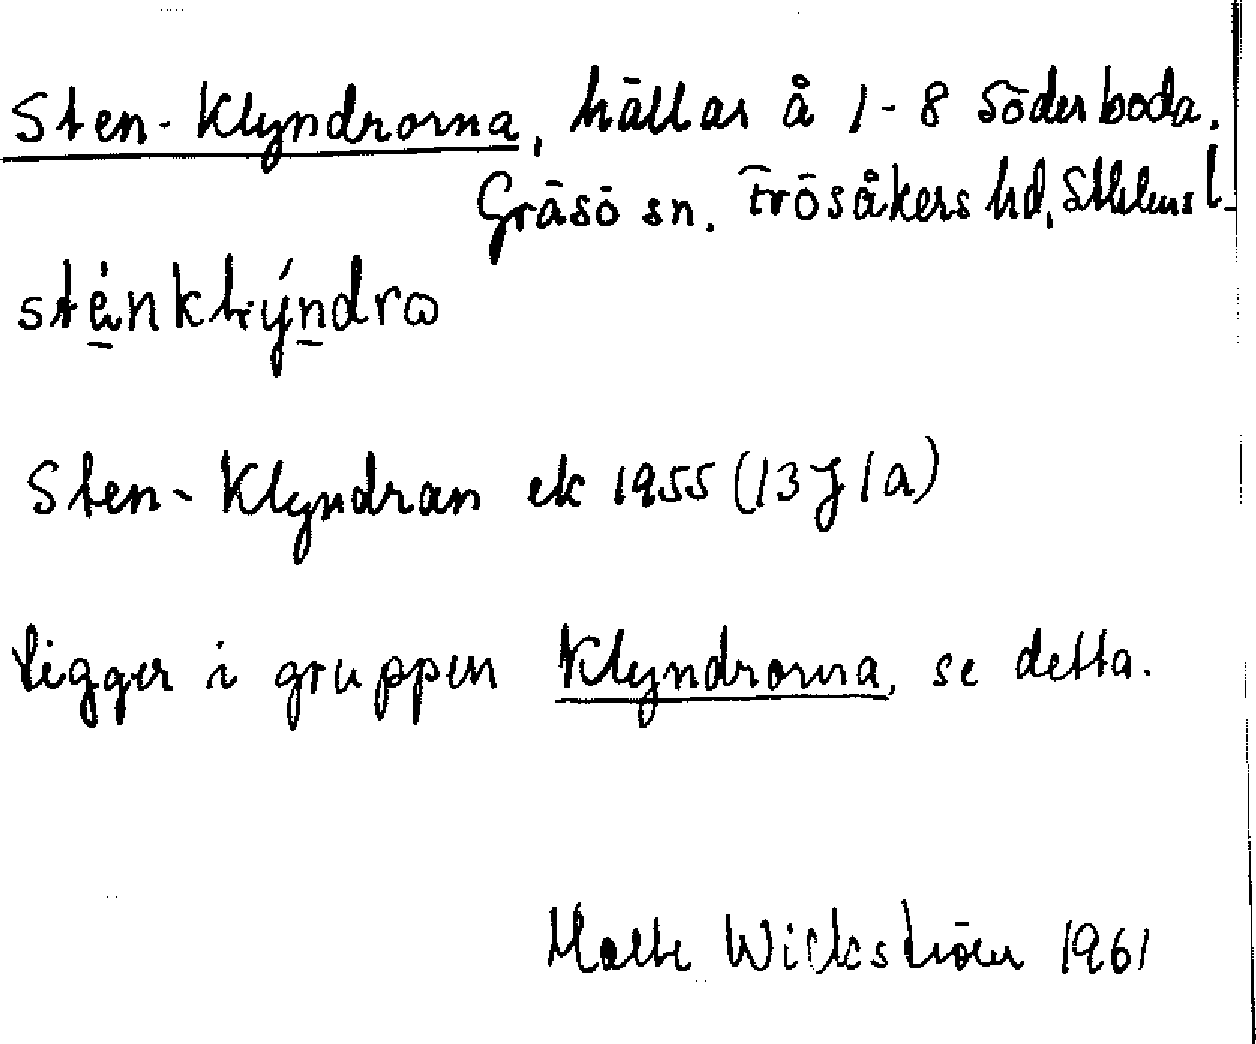 Sten-Klyndrorna, hällar å 1-8 Söderboda.
Gräsö sn. Frösåkers hd, Sthlms l.
Sten-Klyndran ek 1955 (13J1a)
Ligger i gruppen Klyndrorna, se detta.
Malte Wickström 1961